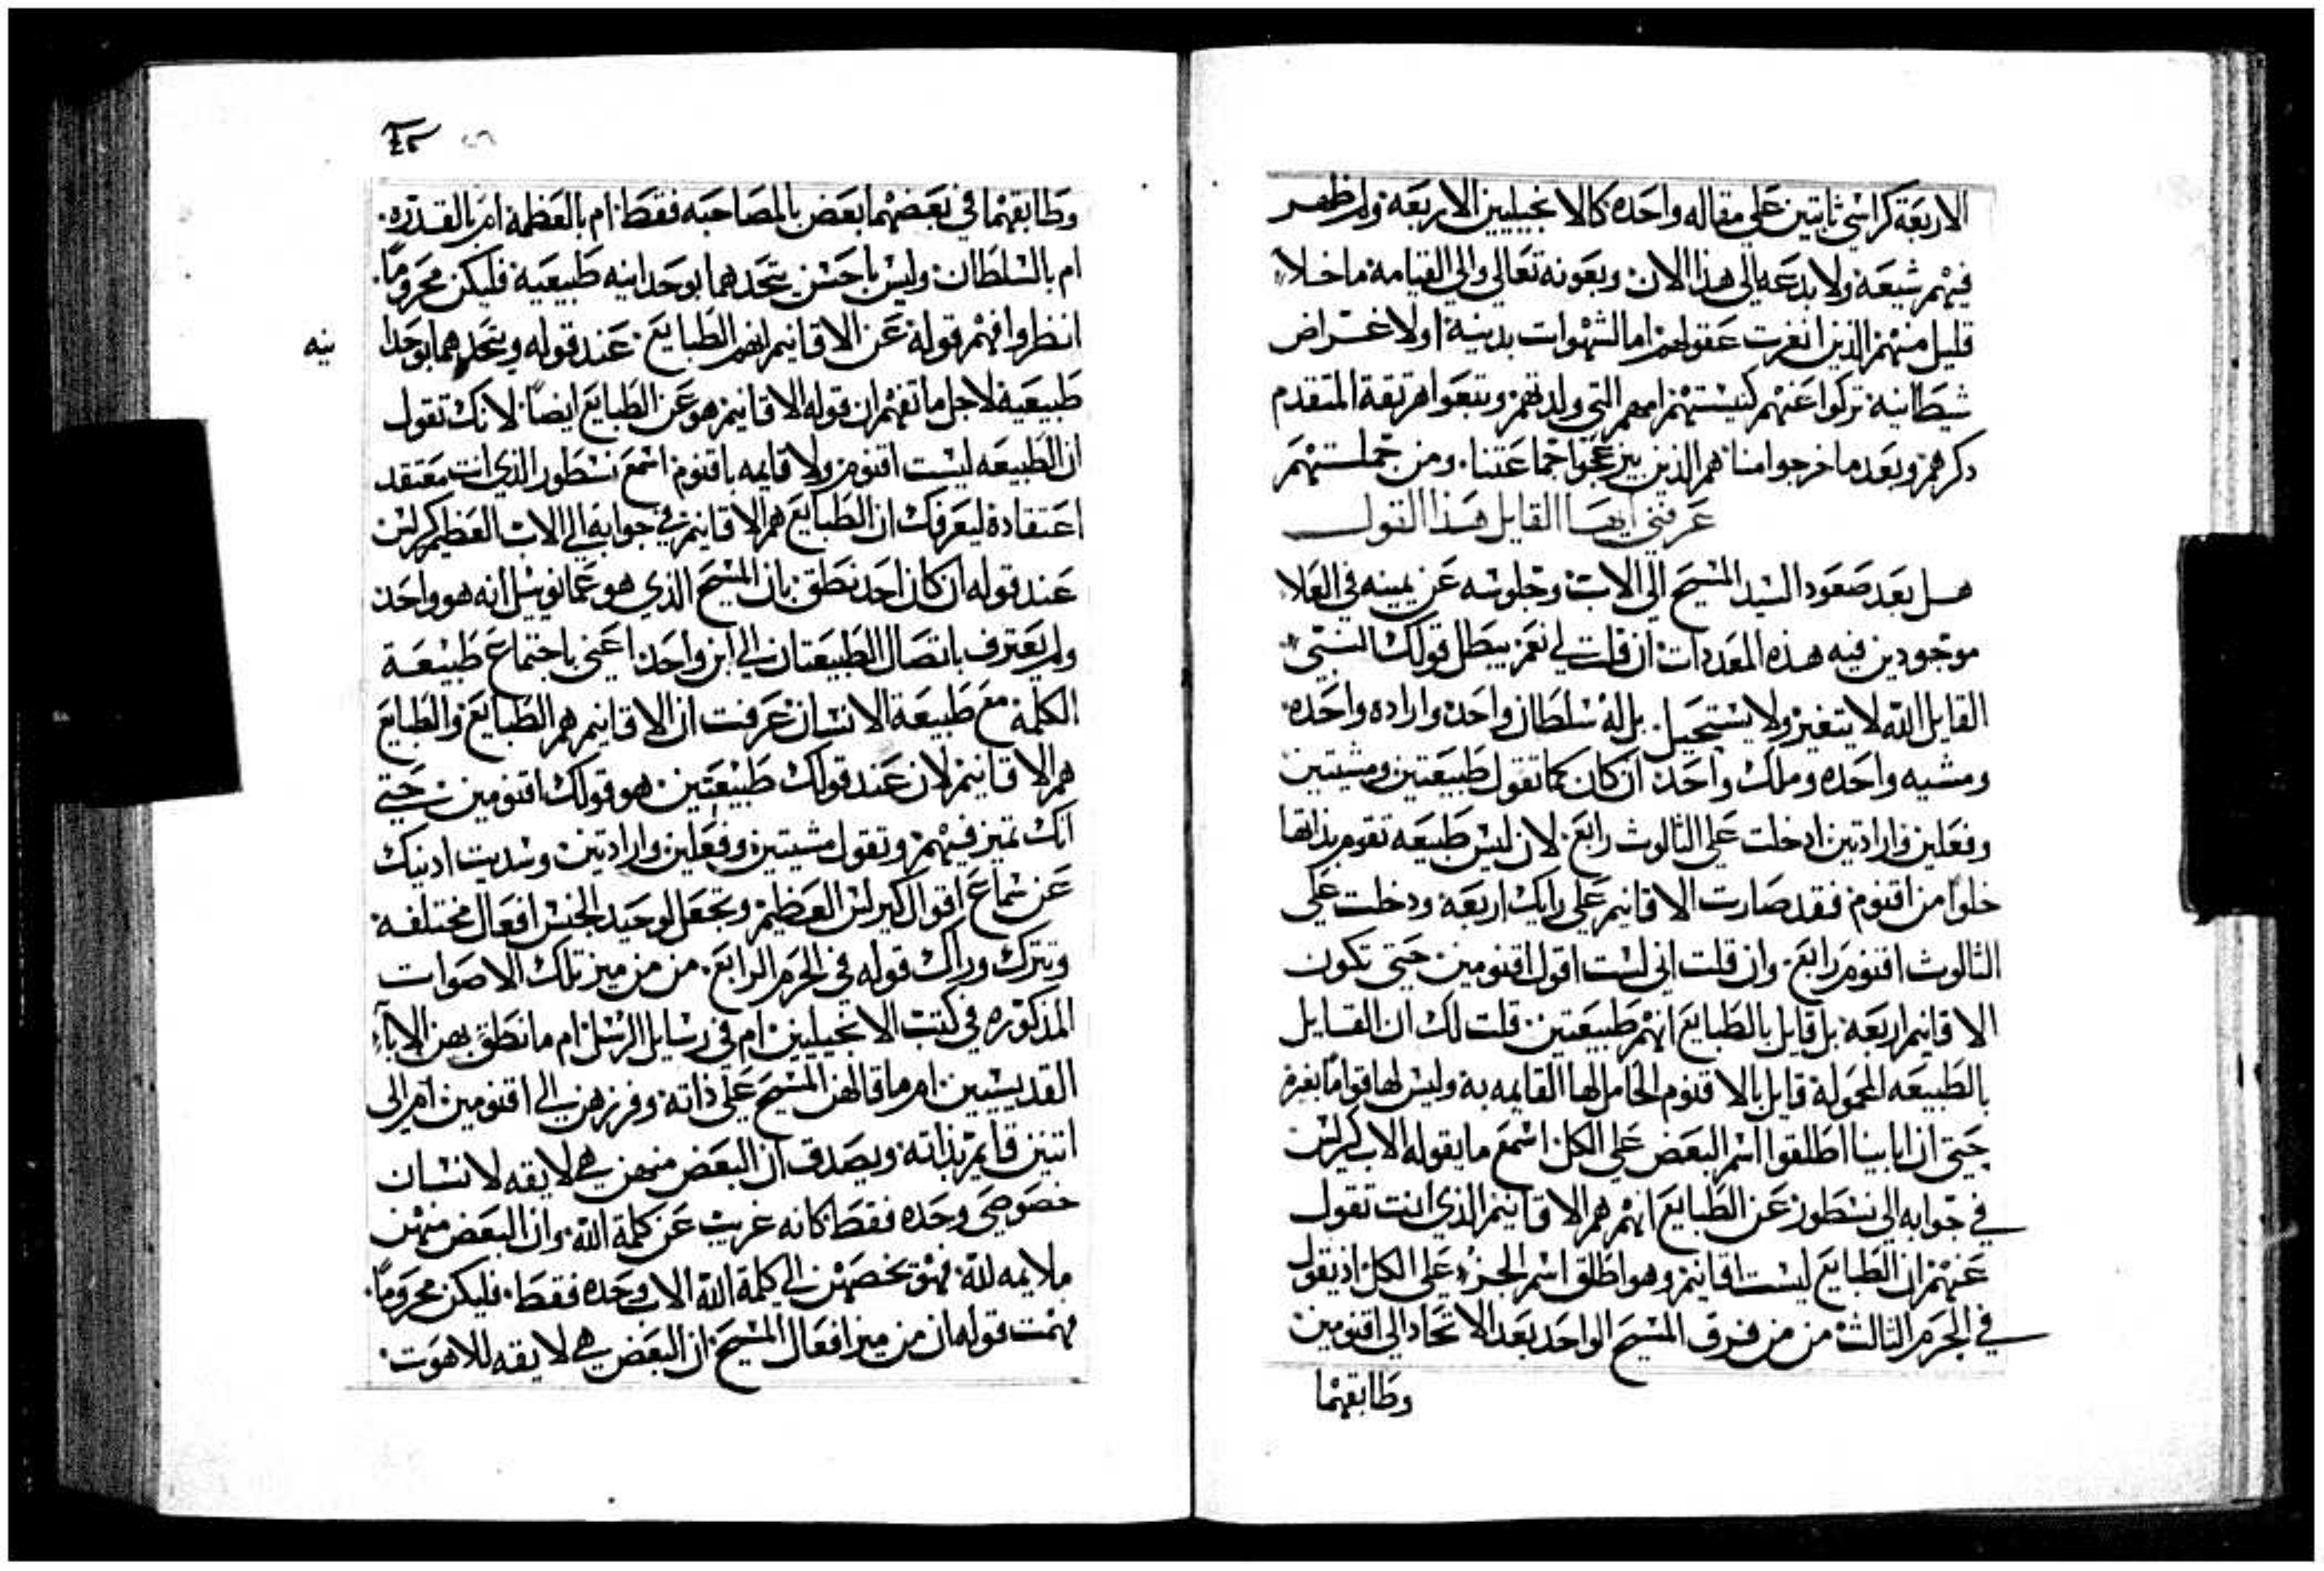 الاربعة كراسي ثابتين علي مقاله واحده كالانجيليين الاربعة ولم ظهر
فيهم شيعة ولا بدعه الي هذا الان وبعونه تعالي والي القيامة ما خلا
قليل منهم الذين عقولهم اما لشهوات بدنية او لاغراض
شيطانيه تركوا عنهم كنيستهم امهم التي ولدتهم وتبعوا المتقدم
دكرهم وبعد ما خرجوا منا هم الذين يزعجوا جماعتنا. ومن جملتهم
عرفني ايها القايل هذا القول
هل بعد صعود السيد المسيح الي الاب وجلوسه عن يمينه في العلا
موجودين فيه هذه المعددات ان قلت لي نعم يبطل قولك النبي
القايل الله لا يتغير ولا يستحيل. بل له سلطان واحد وارادة واحده
ومشيه واحده وملك واحد ان كان كما تقول طبيعتين ومشيتين
وفعلين وارادتين ادخلت علي الثالوث رابع لان ليس طبيعه تقوم بذاتها
خلوا من اقنوم فقد صارت الاقانيم علي رايك اربعة ودخلت علي
الثالوث اقنوم رابع. وان قلت اني لست اقول اقنومين حتي تكون
الاقانيم اربعة بل قايل بالطبايع انهم طبيعتين قلت لك ان القايل
بالطبيعه المحمولة قايل بالاقنوم الحامل لها القايمه به وليس لها قواما بغيره
حتي ان اباينا اطلقوا اسم البعض علي الكل اسمع ما يقوله الاب كيرلس
في جوابه الي نسطور عن الطبايع انهم هم الاقانيم الذي انت تقول
عنهم ان الطبايع ليست اقانيم وهو اطلق اسم الجزء علي الكل اذ يقول
في الجرم الثالث من من فرق المسيح الواحد بعد الاتحاد الي اقنومين
وطابقهما
٤٢
وطابقهما في بعضهما بعض بالمصاحبه فقط ام بالعظمة ام بالقدره.
ام بالسلطان وليس باحسن يتحدهما بوحدانيه طبيعيه فليكن محروما.
انظروا افهم قولة عن الاقانيم انهم الطبايع عند قوله ويتحدهما بوحدا
نيه
طبيعية لاجل ما تفهم ان قوله الاقانيم هو عن الطبايع ايضا لانك تقول
ان الطبيعه ليست اقنوم ولا قايمه باقنوم اسمع نسطور الذي انت معتقد
اعتقادة ليعرفك ان الطبايع هم الاقانيم في جوابه الي الاب العظيم كيرلس
عند قوله ان كان احد نطق بان المسيح الذي هو عمانويل انه هو واحد
ولم يعترف باتصال الطبيعتان الي ابن واحد اعني باجتماع طبيعة
الكلمة مع طبيعة الانسان عرفت ان الاقانيم هم الطبايع والطبايع
هم الاقانيم لان عند قولك طبيعتين هو قولك اقنومين حتي
انك تميز فيهم وتقول مشيتين وفعلين وارادتين وسديت ادنيك
عن سماع اقوال كيرلس العظيم وتجعل لوحيد الجنس افعال مختلفة
وتترك وراك قوله في الجرم الرابع. من من ميز تلك الاصوات
المذكوره في كتب الانجيليين ام في رسايل الرسل ام ما نطق بهن الاباء
القديسيين ام ما قالهن المسيح علي ذاتة وفرزهن الي اقنومين ام الي
اتنين قايم بذاته ويصدق ان البعض منهن هي لايقه لانسان
خصوصي وحده فقط كانه غريب عن كلمة الله وان البعض منهن
ملايمه لله تخصهن الي كلمة الله الاب وحده فقط. فليكن محروما.
فهمت قوله ان من ميز افعال المسيح ان البعض هي لايقه للاهوت.